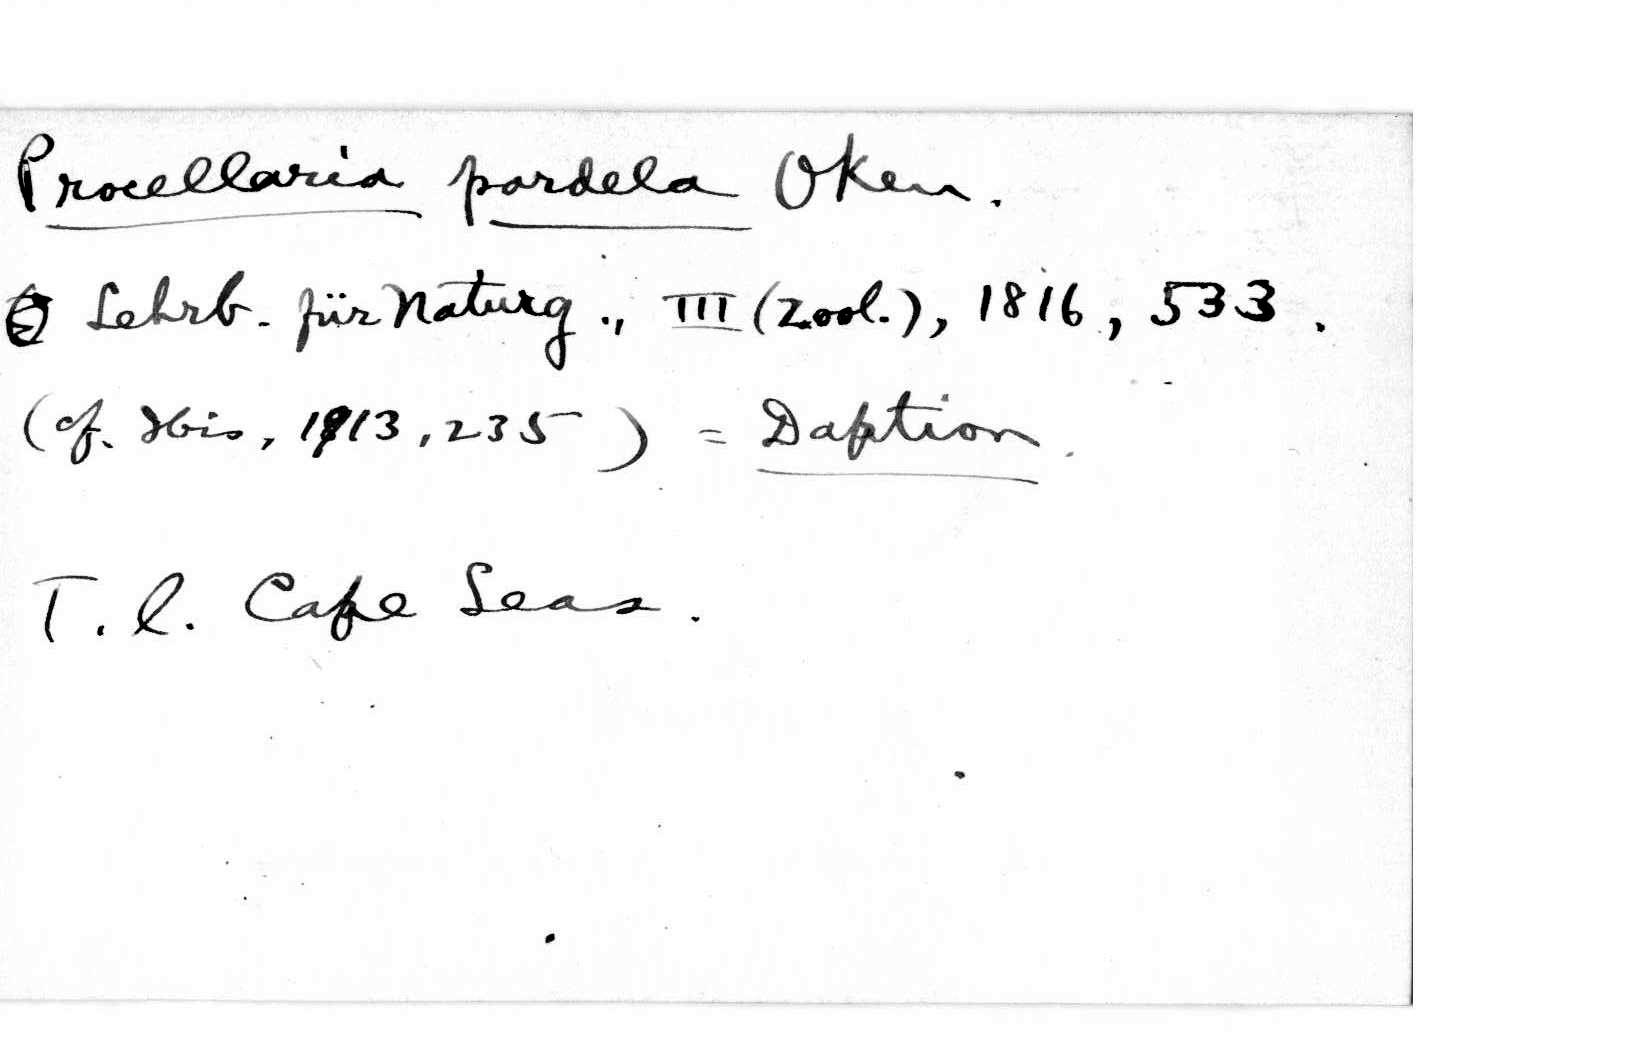 Procellaria pardela Oken.
Lehrb. für Naturg., III (Zool.), 1816, 533.
(cf. Ibis, 1913, 235) = Daption.
T. l. Cape Seas.